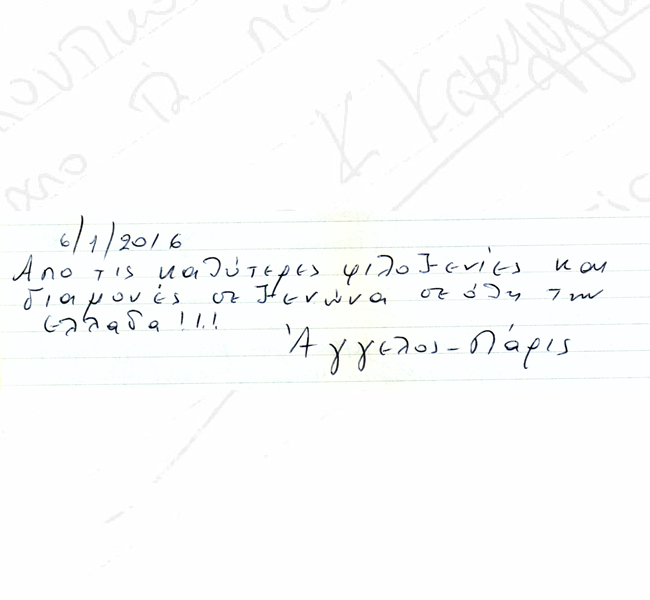 6/1/2016
Απο τις καλύτερες φιλοξενίες και
διαμονές σε ξενώνα σε όλη την
ελλαδα!!!
Άγγελος-Πάρις